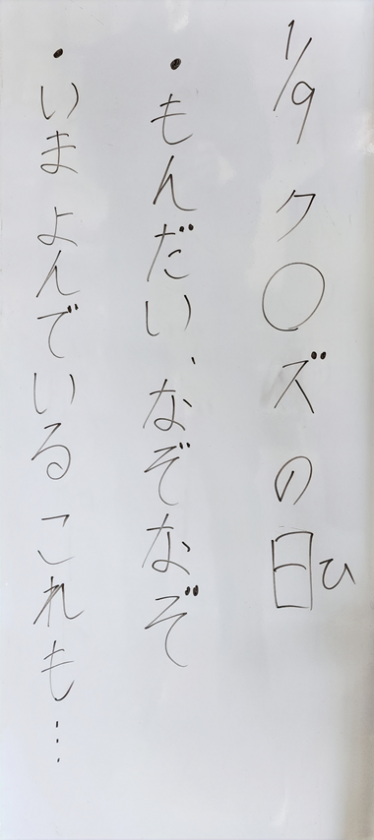 1/9 ク〇ズの日ひ
・もんだい、なぞなぞ
・いま よんでいる これも…